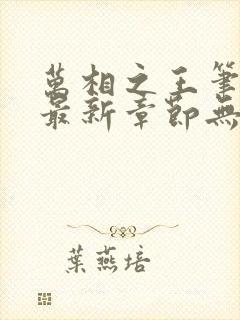 萬相之王筆
最新章節無
葉燕培